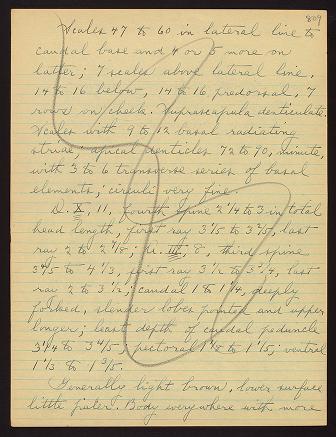 809
Scales 47 to 60 in lateral line to
caudal base and 4 or 5 more on
latter; 7 scales above lateral line,
14 to 16 below, 14 to 16 predorsal, 7
rows on cheek. Suprascapula denticulate.
Scales with 9 to 12 basal radiating
striae; apical denticles 72 to 90, minute,
with 3 to 6 transverse series of basal
elements; circuli very fine.
D. X, 11, fourth spine 2 1/4 to 3 in total
head length, first ray 3 1/5 to 3 3/5, last
ray 2 to 2 7/8; A. III, 8, third spine
3 4/5 to 4 1/3, first ray 3 1/2 to 3 3/4, last
ray 2 to 3 1/2; caudal 1 to 1 1/4, deeply
forked, slender lobes pointed and upper
longer; least depth of caudal peduncle
3 1/4 to 3 4/5; pectoral 1 1/8 to 1 1/5; ventral
1 1/3 to 1 3/5.
Generally light brown, lower surface
little paler. Body everywhere with more